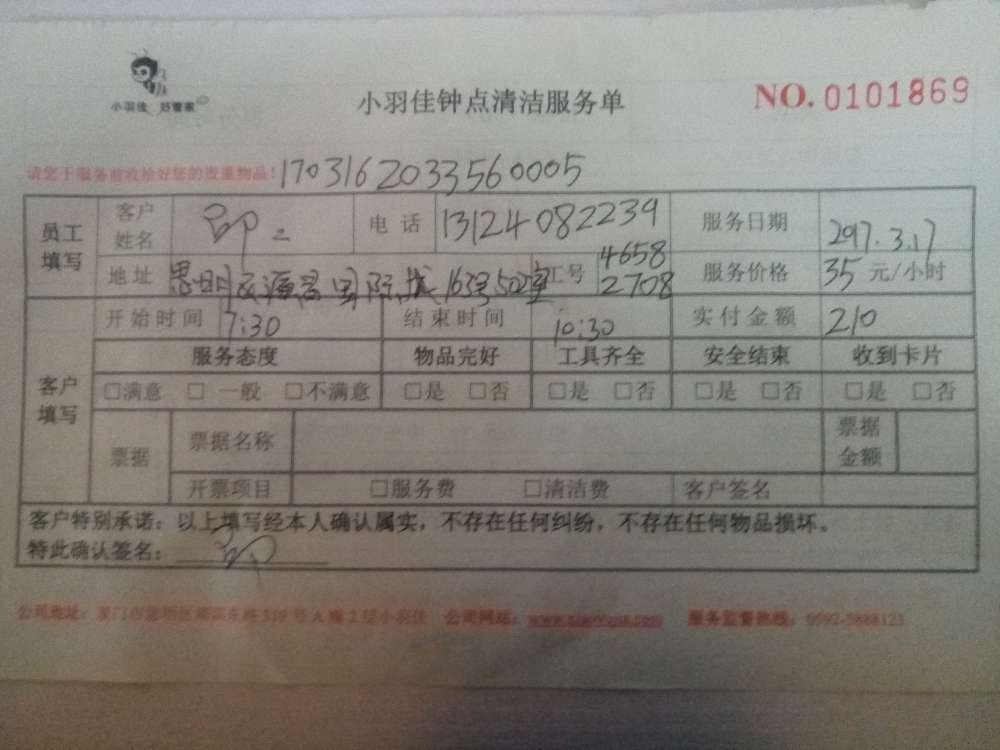 小羽佳 好管家
小羽佳钟点清洁服务单
NO.0101869
请您于服务前收拾好您的贵重物品！1703162033560005
员工填写 客户姓名 电话 13124082239 服务日期 2017.3.17
地址 思明区源昌国际 163号502室 工号 4658 2708 服务价格 35 元/小时
客户填写 开始时间 7:30 结束时间 10:30 实付金额 210
服务态度 物品完好 工具齐全 安全结束 收到卡片
□满意 □一般 □不满意 □是 □否 □是 □否 □是 □否 □是 □否
票据 票据名称 票据金额
开票项目 □服务费 □清洁费 客户签名
客户特别承诺：以上填写经本人确认属实，不存在任何纠纷，不存在任何物品损坏。
特此确认签名：
公司地址：厦门市思明区湖滨东路319号A幢2层小羽佳 公司网站： 服务监督热线：0592-5888123